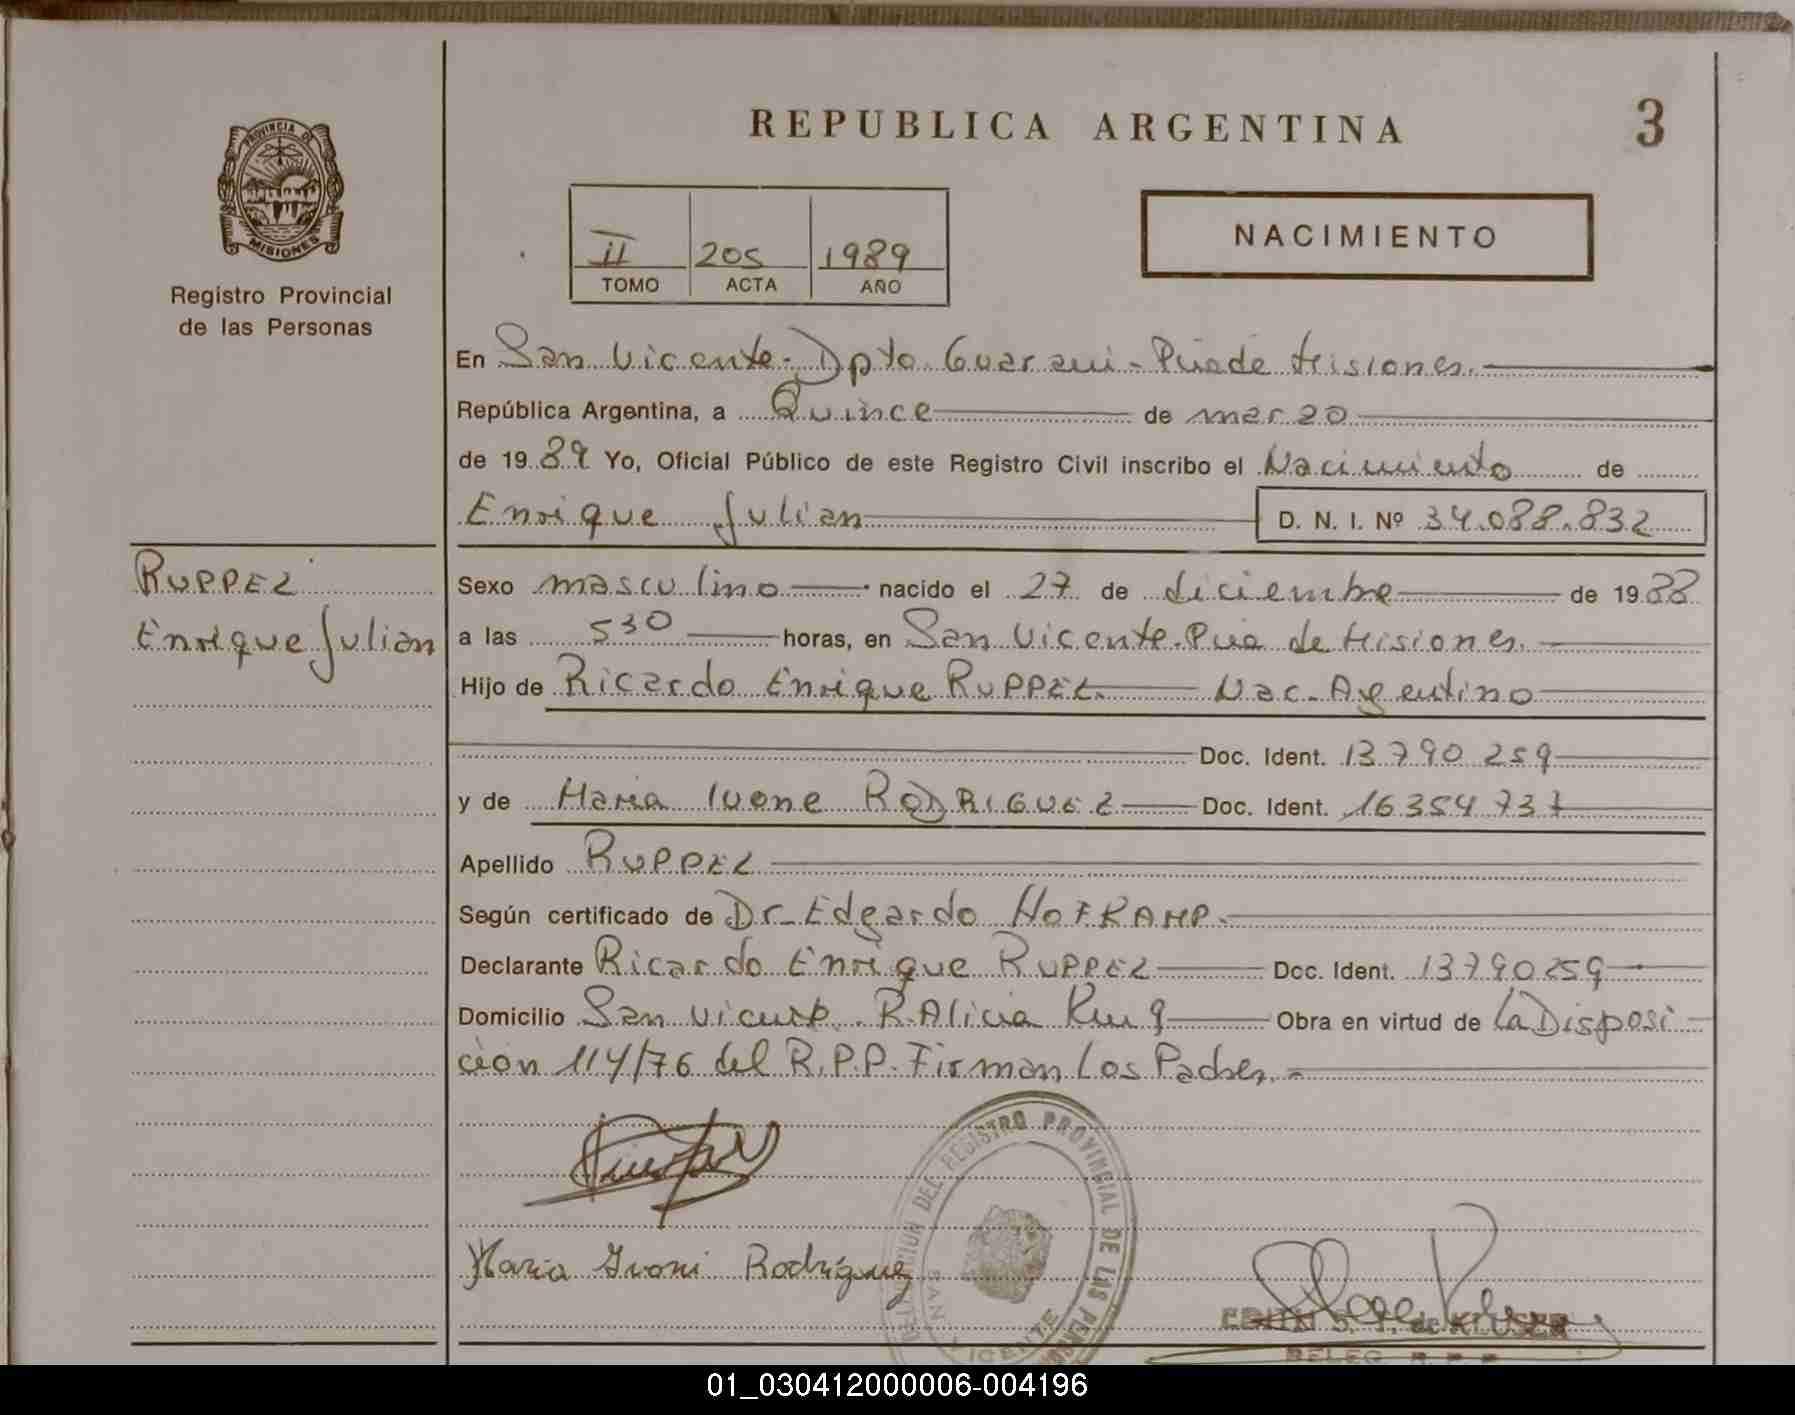 REPUBLICA ARGENTINA
3
PROVINCIA DE
MISIONES
Registro Provincial
de las Personas
II 205 1989
TOMO ACTA AÑO
NACIMIENTO
En San Vicente - Dpto Guarani - Pcia de Misiones.
República Argentina, a Quince de marzo
de 19 89 Yo, Oficial Público de este Registro Civil inscribo el Nacimiento de
Enrique Julian D. N. I. Nº 34.088.832
RUPPEL
Enrique Julian
Sexo masculino nacido el 27 de diciembre de 19 88
a las 530 horas, en San Vicente - Pcia de Misiones.
Hijo de Ricardo Enrique RUPPEL. Nac. Argentino
Doc. Ident. 13.790 259
y de Maria Ivone RODRIGUEZ Doc. Ident. 16354737
Apellido RUPPEL
Según certificado de Dr. Edgardo HOFKAMP.
Declarante Ricardo Enrique RUPPEL Doc. Ident. 13790259
Domicilio San Vicente R. Alicia Obra en virtud de La Disposi
ción 114/76 del R.P.P. Firman Los Padres.
Maria Ivoni Rodriguez
DEL REGISTRO PROVINCIAL DE LAS
SAN VICENTE
EDITH S. T. de KLUSER
DELEG. R. P. P.
01_030412000006-004196